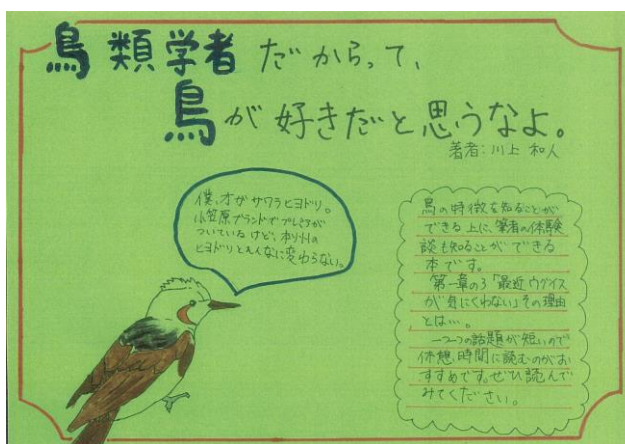 鳥類学者だからって、
鳥が好きだと思うなよ。
著者:川上和人
僕、オガサワラヒヨドリ。
小笠原ブランドでプレミアが
ついているけど、本州の
ヒヨドリとそんなに変わらない。
鳥の特徴を知ることが
できる上に、筆者の体験
談も知ることができる
本です。
第一章の3「最近ウグイス
が気にくわない」その理由
とは…。
一つ一つの話題が短いので
休憩時間に読むのがお
すすめです。ぜひ読んで
みてください。